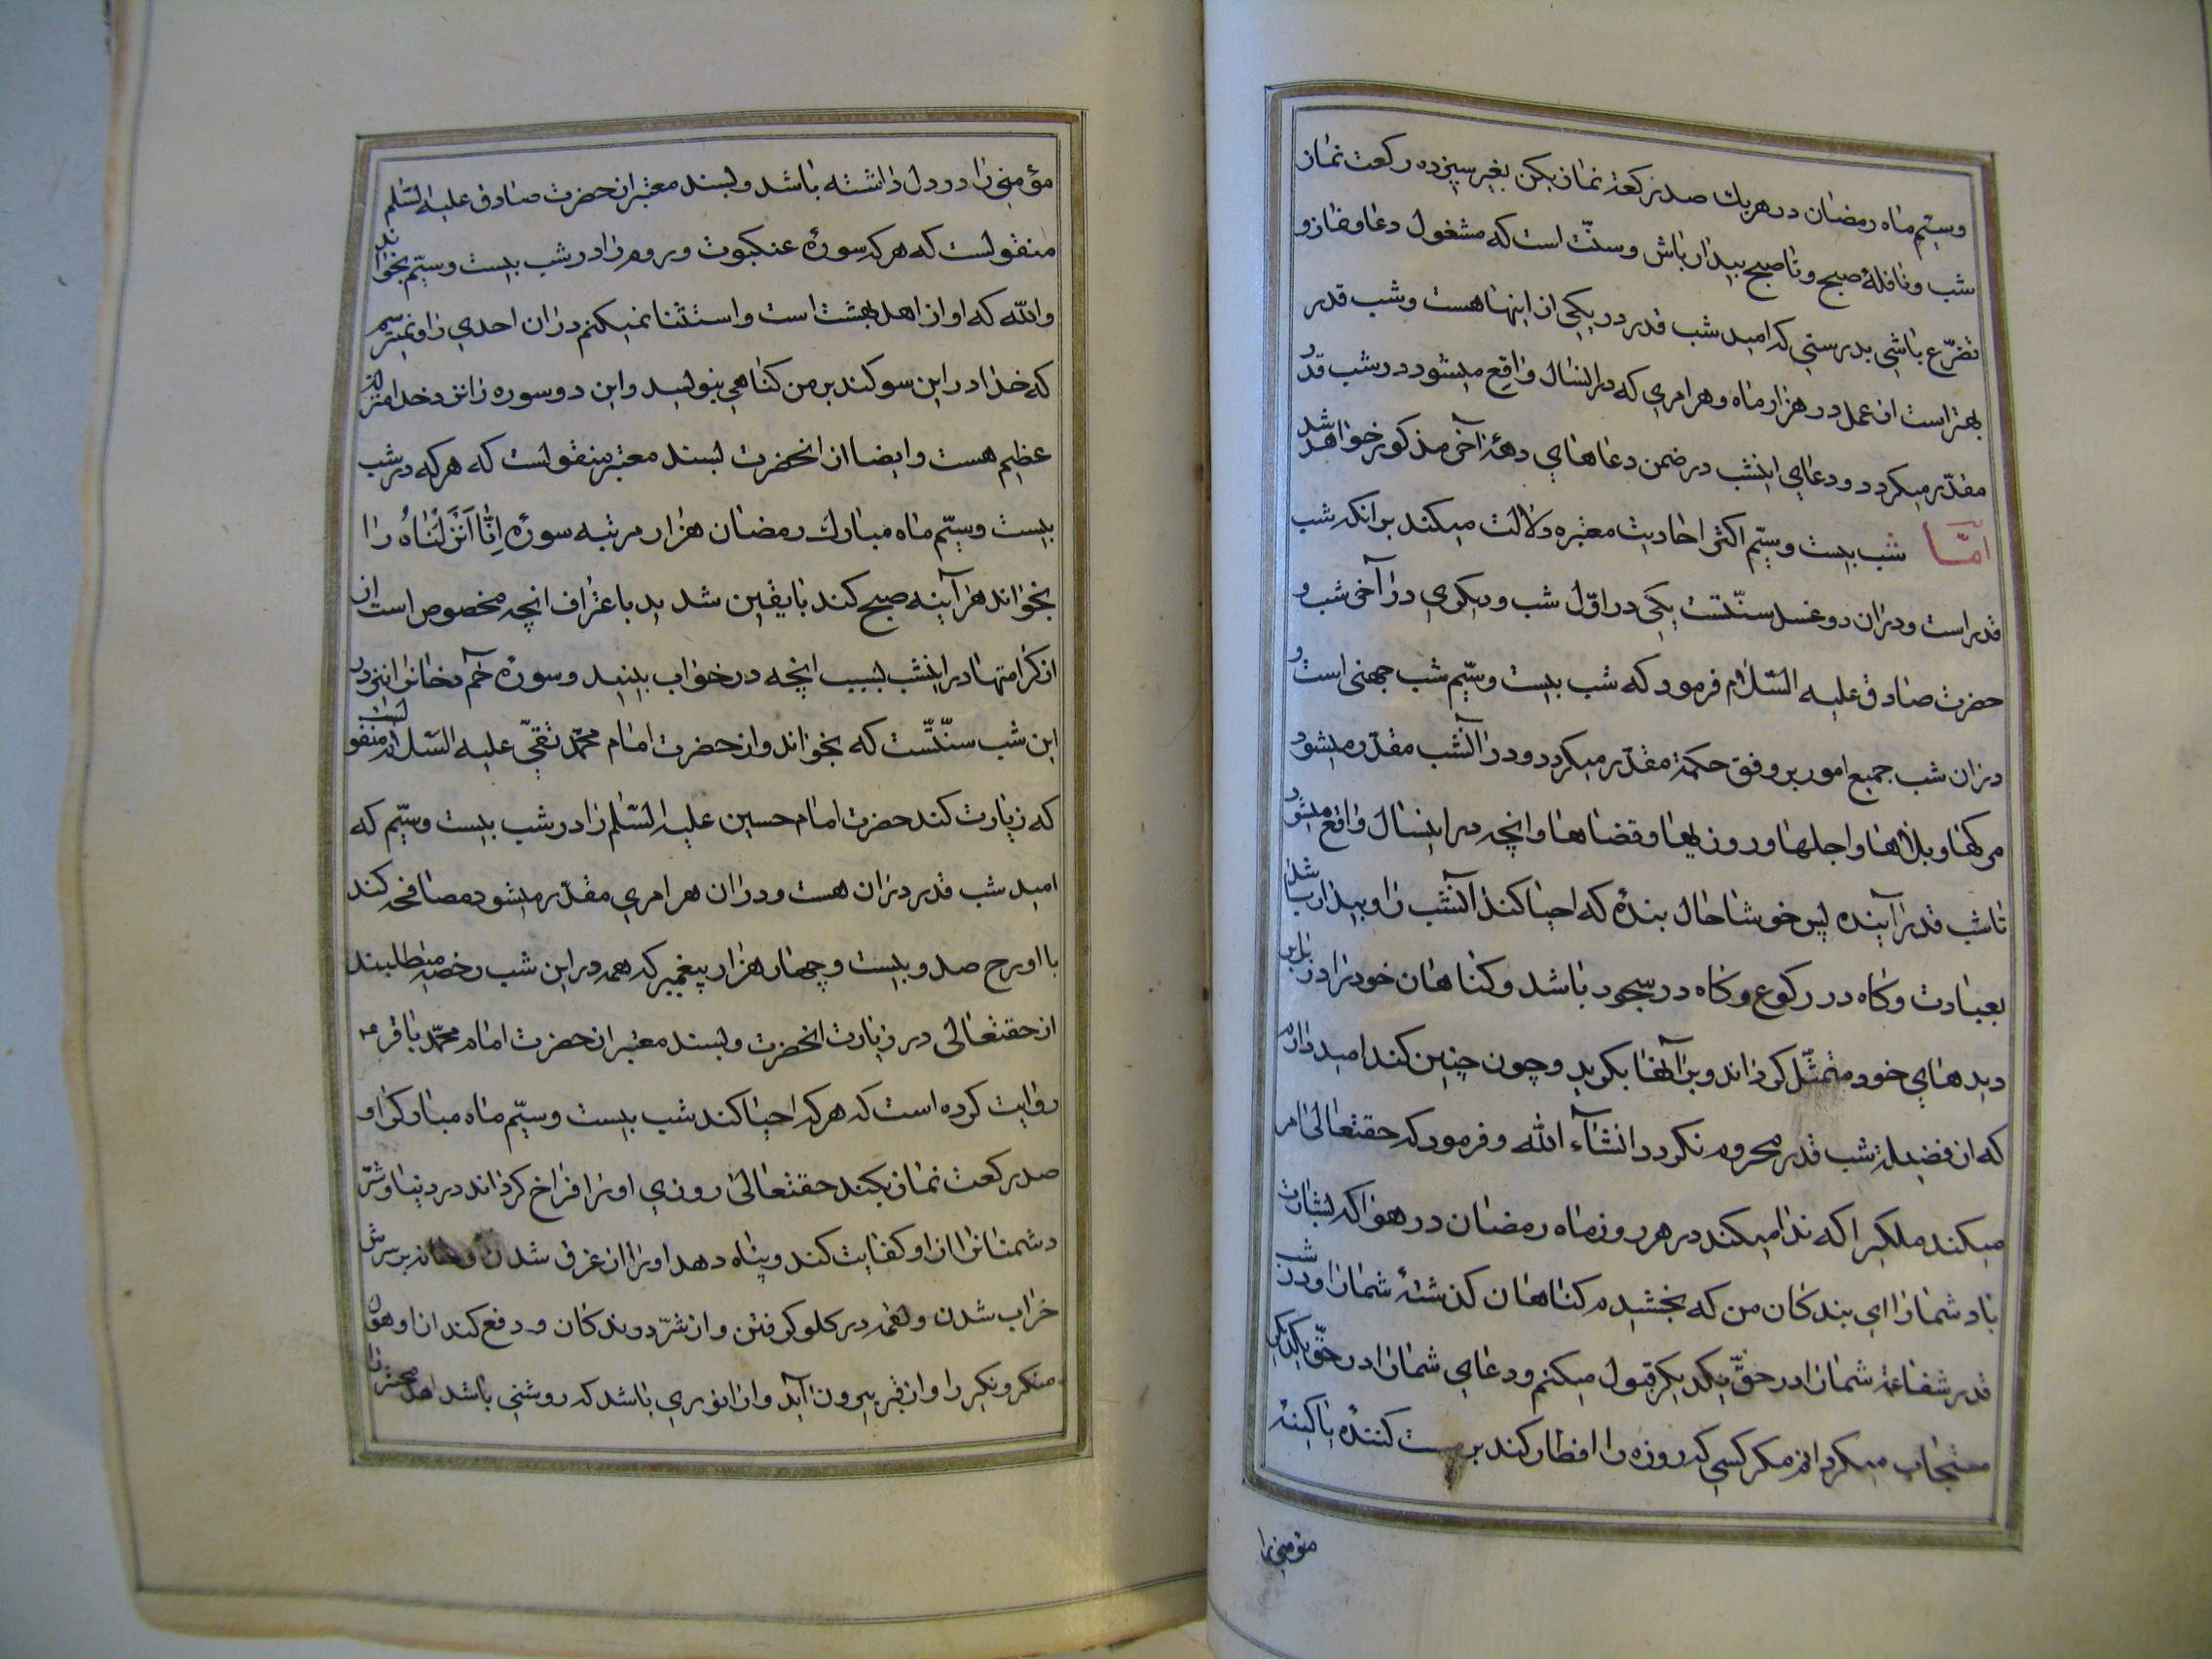 وسیّم ماه رمضان در هریك صد رکعة نماز بکن بغیر سیزده رکعت نماز
شب و نافلهٔ صبح و تا صبح بیدار باش و سنّت است که مشغول دعا و نماز و
تضرّع باشی بدرستی که امید شب قدر در یکی از اینها هست و شب قدر
بهتر است از عمل در هزار ماه و هر امری که در انسال واقع میشود در شب قدر
مقدّر میکردد و دعای اینشب در ضمن دعاهای دههٔ آخر مذکور خواهد شد
امّا شب بیست و سیّم اکثر احادیث معتبره دلالت میکند بر انکه شب
قدر است و در ان دو غسل سنّتست یکی در اوّل شب و دیکری در آخر شب و
حضرت صادق علیه السّلام فرمود که شب بیست و سیّم شب جهنی است و
در ان شب جمیع امور بر وفق حکمة مقدّر میکردد و در آنشب مقدّر میشود
مرکها و بلاها و اجلها و روزیها و قضاها و انچه در اینسال واقع میشود
تا شب قدر آینده پس خوشا حال بندهٔ که احیا کند آنشب را و بیدار باشد
بعبادت و کاه در رکوع و کاه در سجود باشد و کناهان خود را در برابر
دیدهای خود متمثّل کرداند و بر آنها بکرید و چون چنین کند امید دارم
که از فضیلة شب قدر محروم نکردد انشآء الله و فرمود که حقتعالی امر
میکند ملکیرا که ندا میکند در هر روز ماه رمضان در هوا که بشارت
باد شما را ای بندکان من که بخشیدم کناهان کذشتهٔ شما را و در شب
قدر شفاعة شما را در حقّ یکدیکر قبول میکنم و دعای شما را در حقّ یکدیکر
مستجاب میکردانم مکر کسی که روزه را افطار کند بر مست کنندهٔ یا کینهٔ
مؤمنی را
مؤمنی را در دل داشته باشد و بسند معتبر از حضرت صادق علیه السّلم
منقولست که هر که سورهٔ عنکبوت و روم را در شب بیست و سیّم بخواند
والله که او از اهل بهشت است و استثنا نمیکنم در ان احدی را و نمیترسم
که خدا در این سوکند بر من کناهی بنویسد و این دو سوره را نزد خدا منزلة
عظیم هست و ایضا از انحضرت بسند معتبر منقولست که هر که در شب
بیست و سیّم ماه مبارك رمضان هزار مرتبه سورهٔ اِنّا اَنزَلْنَاهُ را
بخواند هر آینه صبح کند با یقین شدید باعتراف انچه مخصوص است از
از کرامتها در اینشب بسبب انچه در خواب بیند و سورهٔ حٓم دخان را نیز در
این شب سنّتست که بخواند و از حضرت امام محمّد تقی علیه السّلام منقولست
که زیارت کند حضرت امام حسین علیه السّلم را در شب بیست و سیّم که
امید شب قدر در ان هست و در ان هر امری مقدّر میشود مصافحه کند
با او روح صد و بیست و چهار هزار پیغمبر که همه در این شب رخصة میطلبند
از حقتعالی در زیارت انحضرت و بسند معتبر از حضرت امام محمّد باقر ع
روایت کرده است که هر که احیا کند شب بیست و سیّم ماه مبارک را و
صد رکعت نماز بکند حقتعالی روزی او را فراخ کرداند در دنیا و شرّ
دشمنانرا از او کفایت کند و پناه دهد او را از غرق شدن و خانه بر سرش
خراب شدن و لقمه در کلو کرفتن و از شرّ دوندکان و دفع کند از او هول
منکر و نکیر را و از قبر بیرون آید و او را نوری باشد که روشنی باشد اهل محشر را